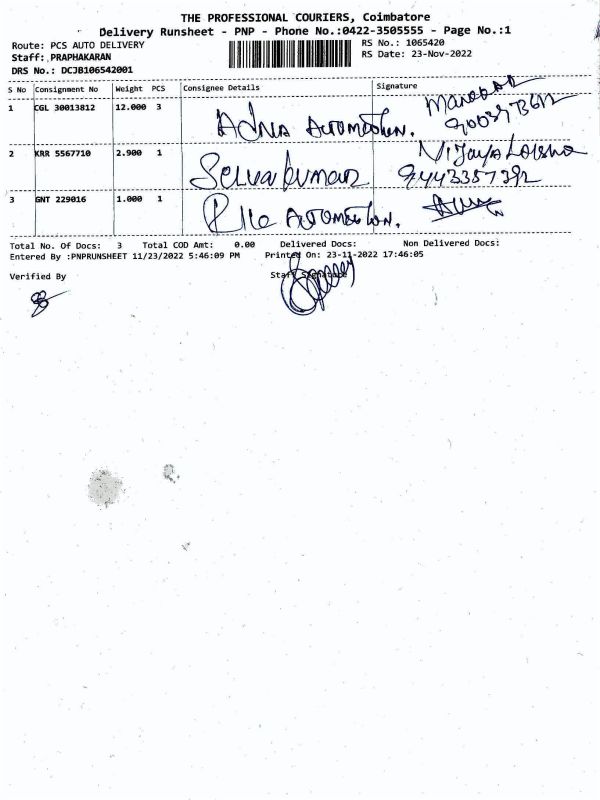 THE PROFESSIONAL COURIERS, Coimbatore
Delivery Runsheet - PNP - Phone No.:0422-3505555 - Page No.:1
Route: PCS AUTO DELIVERY
Staff: PRAPHAKARAN
DRS No.: DCJB106542001
RS No.: 1065420
RS Date: 23-Nov-2022
S No Consignment No Weight PCS Consignee Details Signature
1 CGL 30013812 12.000 3
2 KRR 5567710 2.900 1 Selvakumar 9443357392
3 GNT 229016 1.000 1
Total No. Of Docs: 3 Total COD Amt: 0.00 Delivered Docs: Non Delivered Docs:
Entered By :PNPRUNSHEET 11/23/2022 5:46:09 PM Printed On: 23-11-2022 17:46:05
Verified By Staff Signature